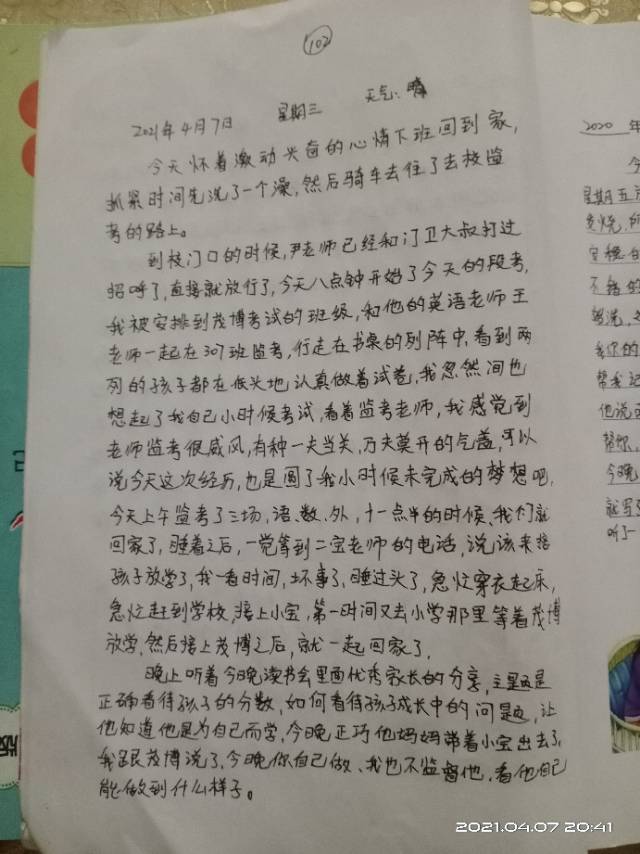 102
2021年4月7日 星期三 天气:晴
今天怀着激动兴奋的心情下班回到家,
抓紧时间先洗了一个澡,然后骑车去往了去校监
考的路上。
到校门口的时候,尹老师已经和门卫大叔打过
招呼了,直接就放行了,今天八点钟开始了今天的段考,
我被安排到茂博考试的班级,和他的英语老师王
老师一起在307班监考,行走在书桌的列阵中,看到两
列的孩子都在低头地认真做着试卷,我忽然间也
想起了我自己小时候考试,看着监考老师,我感觉到
老师监考很威风,有种一夫当关,万夫莫开的气盖,可以
说今天这次经历,也是圆了我小时候未完成的梦想吧,
今天上午监考了三场,语、数、外,十一点半的时候、我们就
回家了,睡着之后,一觉等到二宝老师的电话,说该来接
孩子放学了,我一看时间,坏事了,睡过头了,急忙穿衣起床,
急忙赶到学校,接上小宝,第一时间又去小学那里等着茂博
放学,然后接上茂博之后,就一起回家了,
晚上听着今晚读书会里面优秀家长的分享,主题是
正确看待孩子的分数,如何看待孩子成长中的问题,让
他知道他是为自己而学,今晚正巧他妈妈带着小宝出去了,
我跟茂博说了,今晚你自己做、我也不监督他,看他自己
能做到什么样子。
2020 年
今
星期五
发烧,
不错的
我你的
帮我记
他说
帮你,
今晚
听了一
版
2021.04.07 20:41